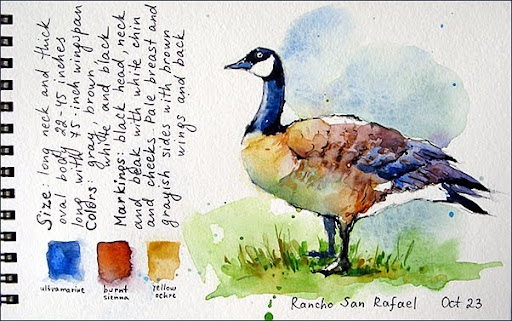 Size: long neck and thick
oval body 22-45 inches
long with 75-inch wingspan
Colors: gray brown
white and black
Markings: black head, neck
and beak with white chin
and cheeks. Pale breast and
grayish sides with brown
wings and back
ultramarine
burnt
sienna
yellow
ochre
Rancho San Rafael Oct 23